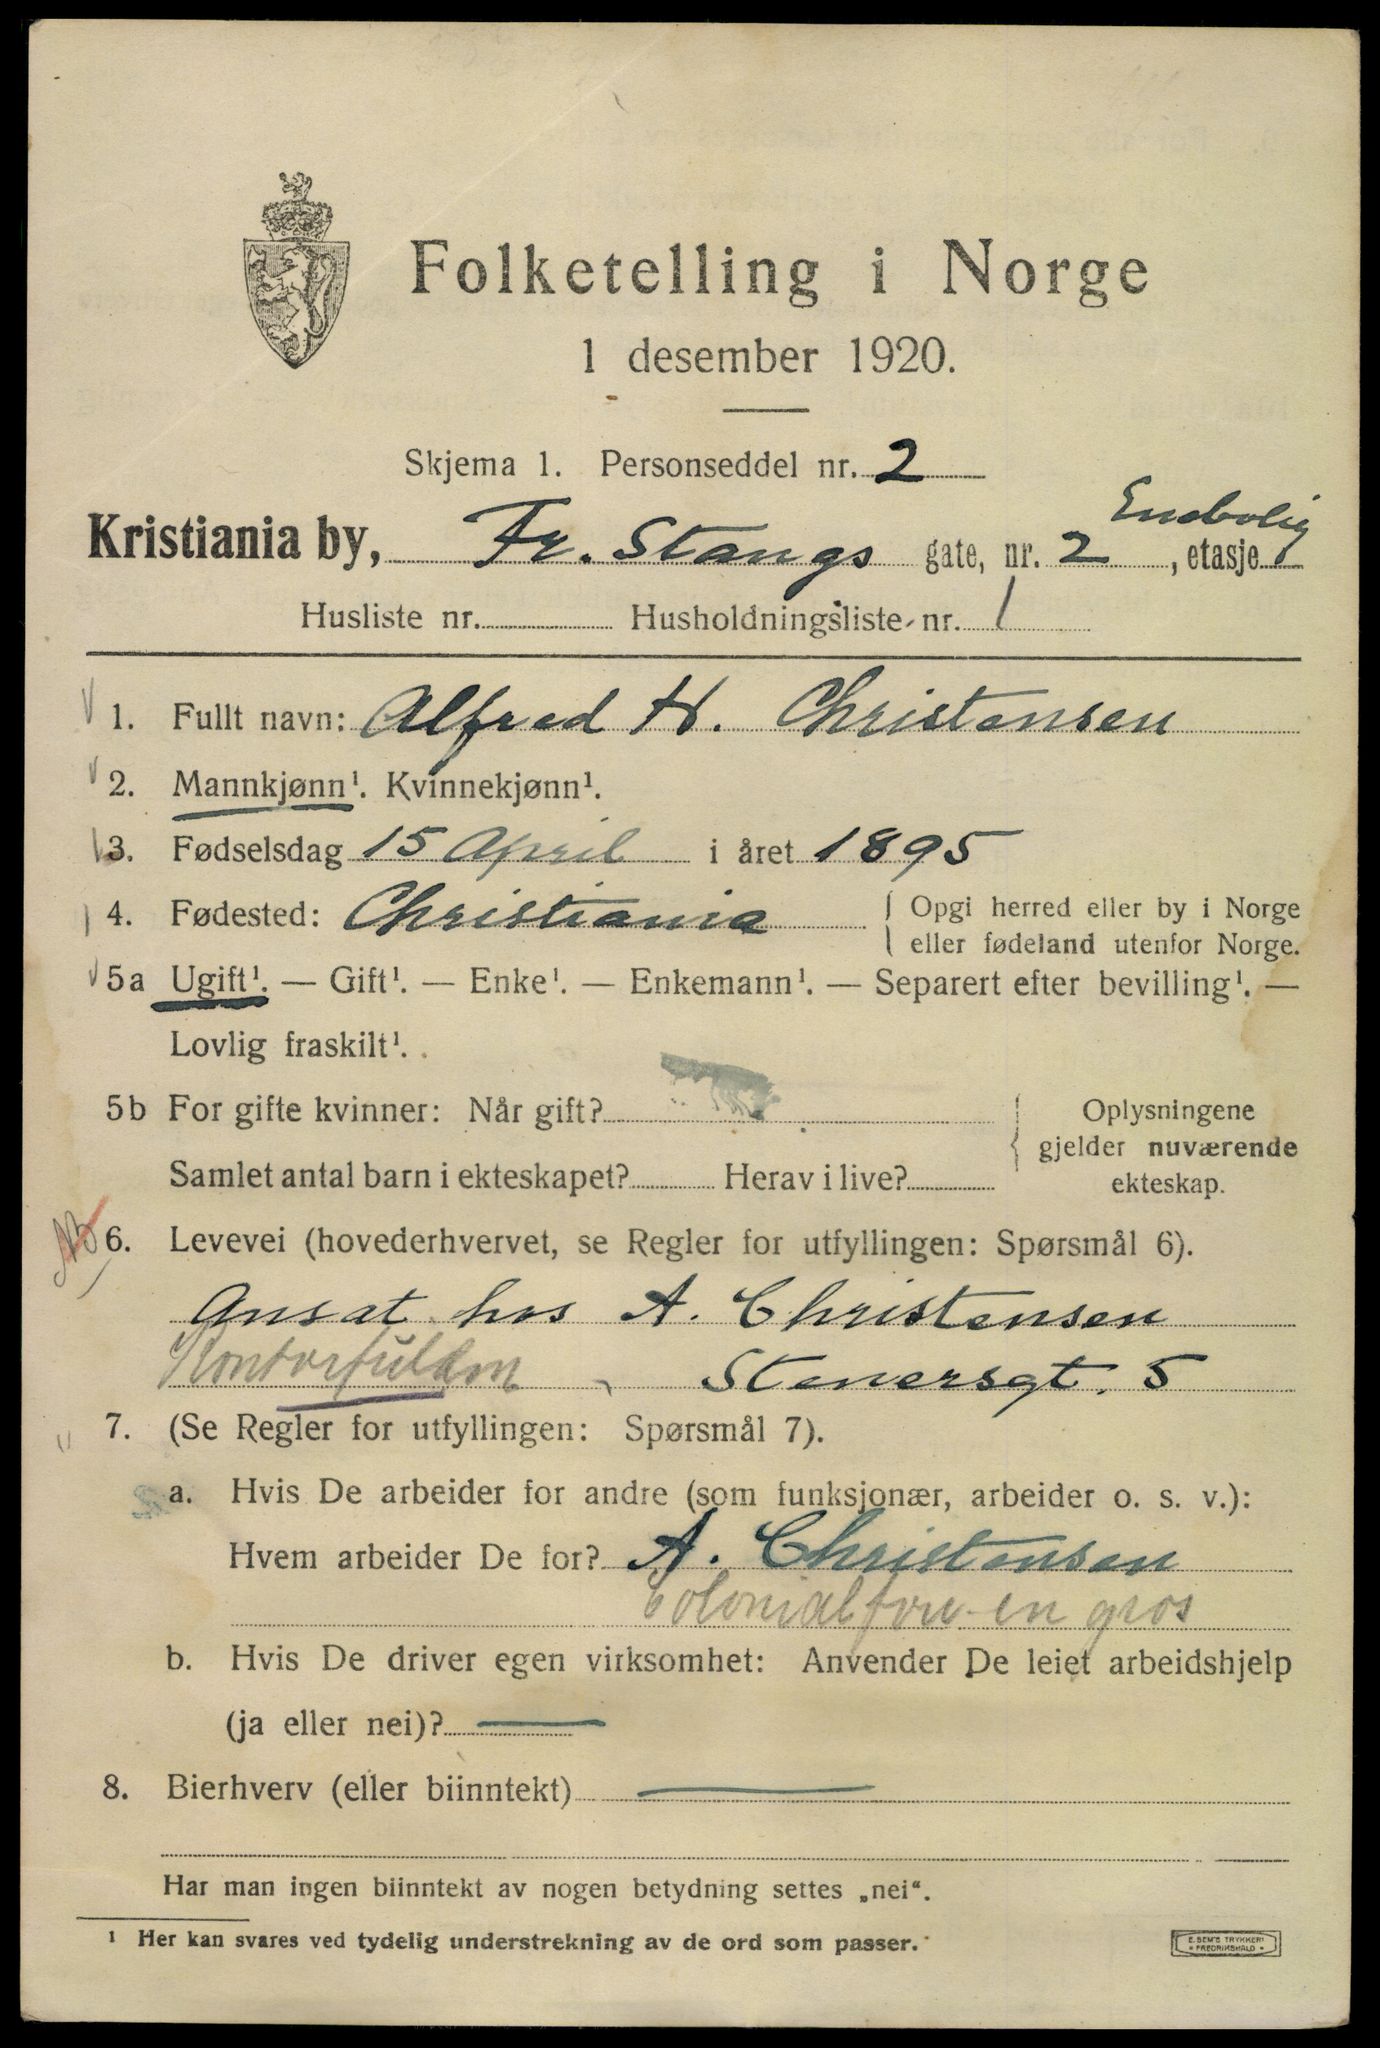 Folketelling i Norge
1 desember 1920.
Skjema 1. Personseddel nr. 2
Enebolig
Kristiania by, Fr. Stangs gate, nr. 2, etasje
Husliste nr. Husholdningsliste nr. 1
1. Fullt navn: Alfred H. Christensen
2. Mannkjønn¹. Kvinnekjønn¹.
3. Fødselsdag 15 April i året 1895
4. Fødested: Christiania { Opgi herred eller by i Norge
eller fødeland utenfor Norge.
5a Ugift¹. — Gift¹. — Enke¹. — Enkemann¹. — Separert efter bevilling¹. —
Lovlig fraskilt¹.
5b For gifte kvinner: Når gift? { Oplysningene
gjelder nuværende
Samlet antal barn i ekteskapet? Herav i live? ekteskap.
6. Levevei (hovederhvervet, se Regler for utfyllingen: Spørsmål 6).
Ansat hos A. Christensen
Kontorfuldm Stenersgt. 5
7. (Se Regler for utfyllingen: Spørsmål 7).
a. Hvis De arbeider for andre (som funksjonær, arbeider o. s. v.):
Hvem arbeider De for? A. Christensen
Colonialforr en gros
b. Hvis De driver egen virksomhet: Anvender De leiet arbeidshjelp
(ja eller nei)? —
8. Bierhverv (eller biinntekt) —
Har man ingen biinntekt av nogen betydning settes „nei“.
¹ Her kan svares ved tydelig understrekning av de ord som passer.
E. SEM'S TRYKKERI
• FREDRIKSHALD •